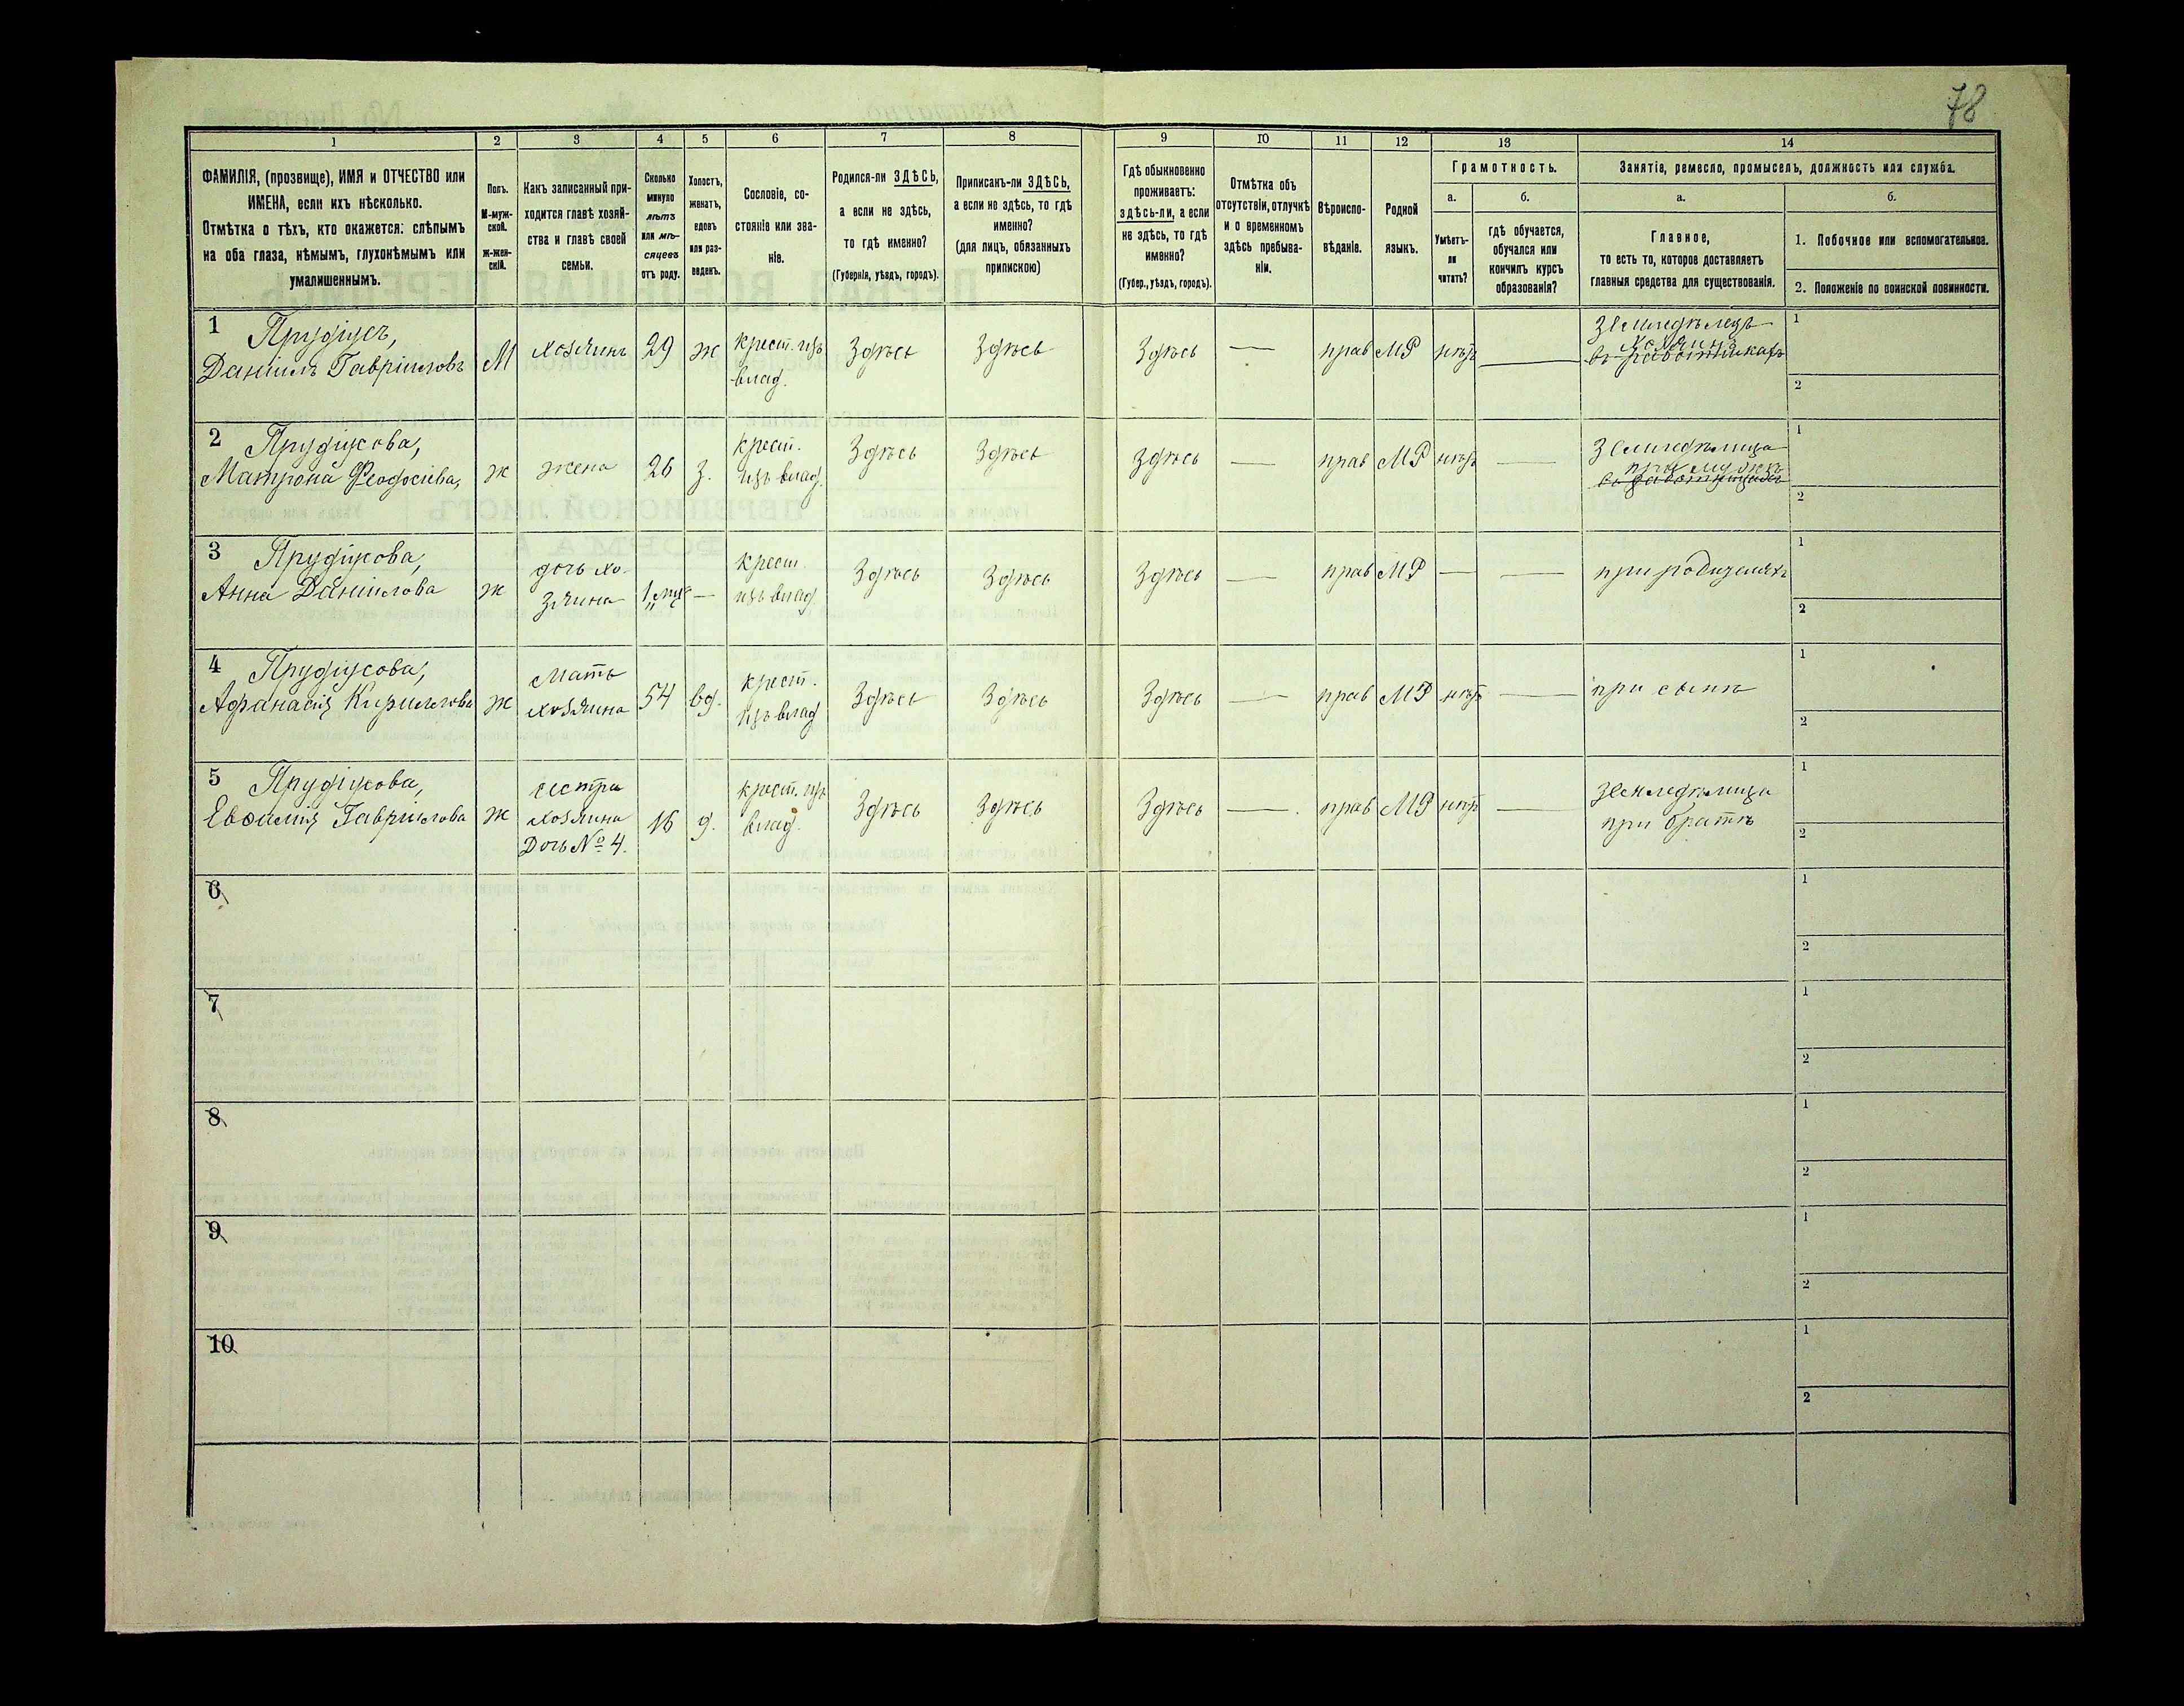 78
1 2 3 4 5 6 7 8 9 10 11 12 13 14
ФАМИЛІЯ, (прозвище), ИМЯ и ОТЧЕСТВО или
ИМЕНА, если ихъ нѣсколько.
Отмѣтка о тѣхъ, кто окажется: слѣпымъ
на оба глаза, нѣмымъ, глухонѣмымъ или
умалишеннымъ.
Полъ.
М-муж-
ской.
Ж-жен-
скій.
Какъ записанный при-
ходится главѣ хозяй-
ства и главѣ своей
семьи.
Сколько
минуло
лѣтъ
или мѣ-
сяцевъ
отъ роду.
Холостъ,
женатъ,
вдовъ
или раз-
веденъ.
Сословіе, со-
стояніе или зва-
ніе.
Родился-ли ЗДѢСЬ,
а если не здѣсь,
то гдѣ именно?
(Губернія, уѣздъ, городъ).
Приписанъ-ли ЗДѢСЬ,
а если не здѣсь, то гдѣ
именно?
(для лицъ, обязанныхъ
припискою)
Гдѣ обыкновенно
проживаетъ:
здѣсь-ли, а если
не здѣсь, то гдѣ
именно?
(Губер., уѣздъ, городъ).
Отмѣтка объ
отсутствіи, отлучкѣ
и о временномъ
здѣсь пребыва-
ніи.
Вѣроиспо-
вѣданіе.
Родной
языкъ.
Грамотность.
а.
Умѣетъ-
ли
читать?
б.
гдѣ обучается,
обучался или
кончилъ курсъ
образованія?
Занятіе, ремесло, промыселъ, должность или служба.
а.
Главное,
то есть то, которое доставляетъ
главныя средства для существованія.
б.
1. Побочное или вспомогательное.
2. Положеніе по воинской повинности.
1 Прудіусъ,
Даніилъ Гавріиловъ
М
хозяинъ
29
ж
крест. изъ
влад.
Здѣсь
Здѣсь
Здѣсь
—
прав
МР
нѣтъ
—
Земледѣлецъ
хозяинъ
въ работникахъ
1
2
2 Прудіусова,
Матрона Феодосіева,
ж
жена
26
з.
крест.
изъ влад.
Здѣсь
Здѣсь
Здѣсь
—
прав
МР
нѣтъ
—
Земледѣлица
при мужѣ
1
2
3 Прудіусова,
Анна Даніилова
ж
дочь хо-
зяина
1 мца
—
крест.
изъ влад
Здѣсь
Здѣсь
Здѣсь
—
прав
МР
—
—
при родителяхъ
1
2
4 Прудіусова,
Афанасія Кириллова
ж
Мать
хозяина
54
вд.
крест.
изъ влад
Здѣсь
Здѣсь
Здѣсь
—
прав
МР
нѣтъ
—
при сынѣ
1
2
5 Прудіусова,
Евфимія Гавріилова
ж
сестра
хозяина
Дочь № 4.
16
д.
крест. изъ
влад.
Здѣсь
Здѣсь
Здѣсь
—
прав
МР
нѣтъ
—
земледѣлица
при братѣ
1
2
6
1
2
7
1
2
8
1
2
9
1
2
10
1
2